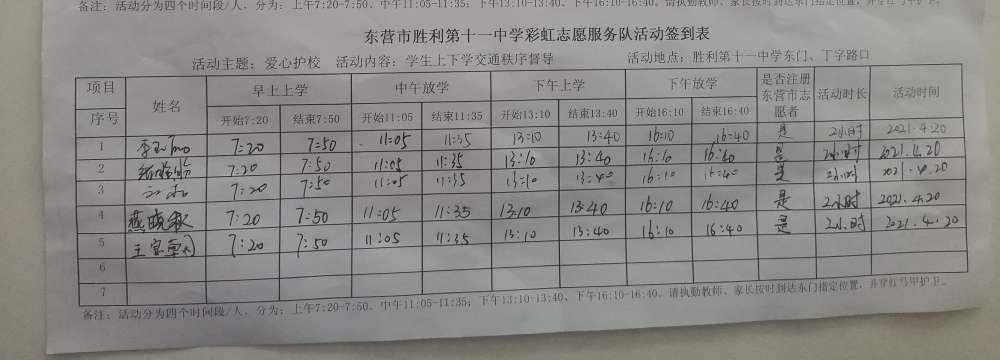 备注：活动分为四个时间段/人，分为：上午7:20-7:50、中午11:05-11:35；下午13:10-13:40、下午16:10-16:40。请执勤教师、家长按时到达东门指定位置，并穿红马甲护卫。
东营市胜利第十一中学彩虹志愿服务队活动签到表
活动主题：爱心护校 活动内容：学生上下学交通秩序督导 活动地点：胜利第十一中学东门、丁字路口
项目 序号 姓名 早上上学 中午放学 下午上学 下午放学 是否注册东营市志愿者 活动时长 活动时间
开始7:20 结束7:50 开始11:05 结束11:35 开始13:10 结束13:40 开始16:10 结束16:40
1 7:20 7:50 11:05 11:35 13:10 13:40 16:10 16:40 是 2小时 2021.4.20
2 7:20 7:50 11:05 11:35 13:10 13:40 16:10 16:40 是 2小时 2021.4.20
3 7:20 7:50 11:05 11:35 13:10 13:40 16:10 16:40 是 2小时 2021.4.20
4 燕晓秋 7:20 7:50 11:05 11:35 13:10 13:40 16:10 16:40 是 2小时 2021.4.20
5 7:20 7:50 11:05 11:35 13:10 13:40 16:10 16:40 是 2小时 2021.4.20
6
7
备注：活动分为四个时间段/人，分为：上午7:20-7:50、中午11:05-11:35；下午13:10-13:40、下午16:10-16:40。请执勤教师、家长按时到达东门指定位置，并穿红马甲护卫。